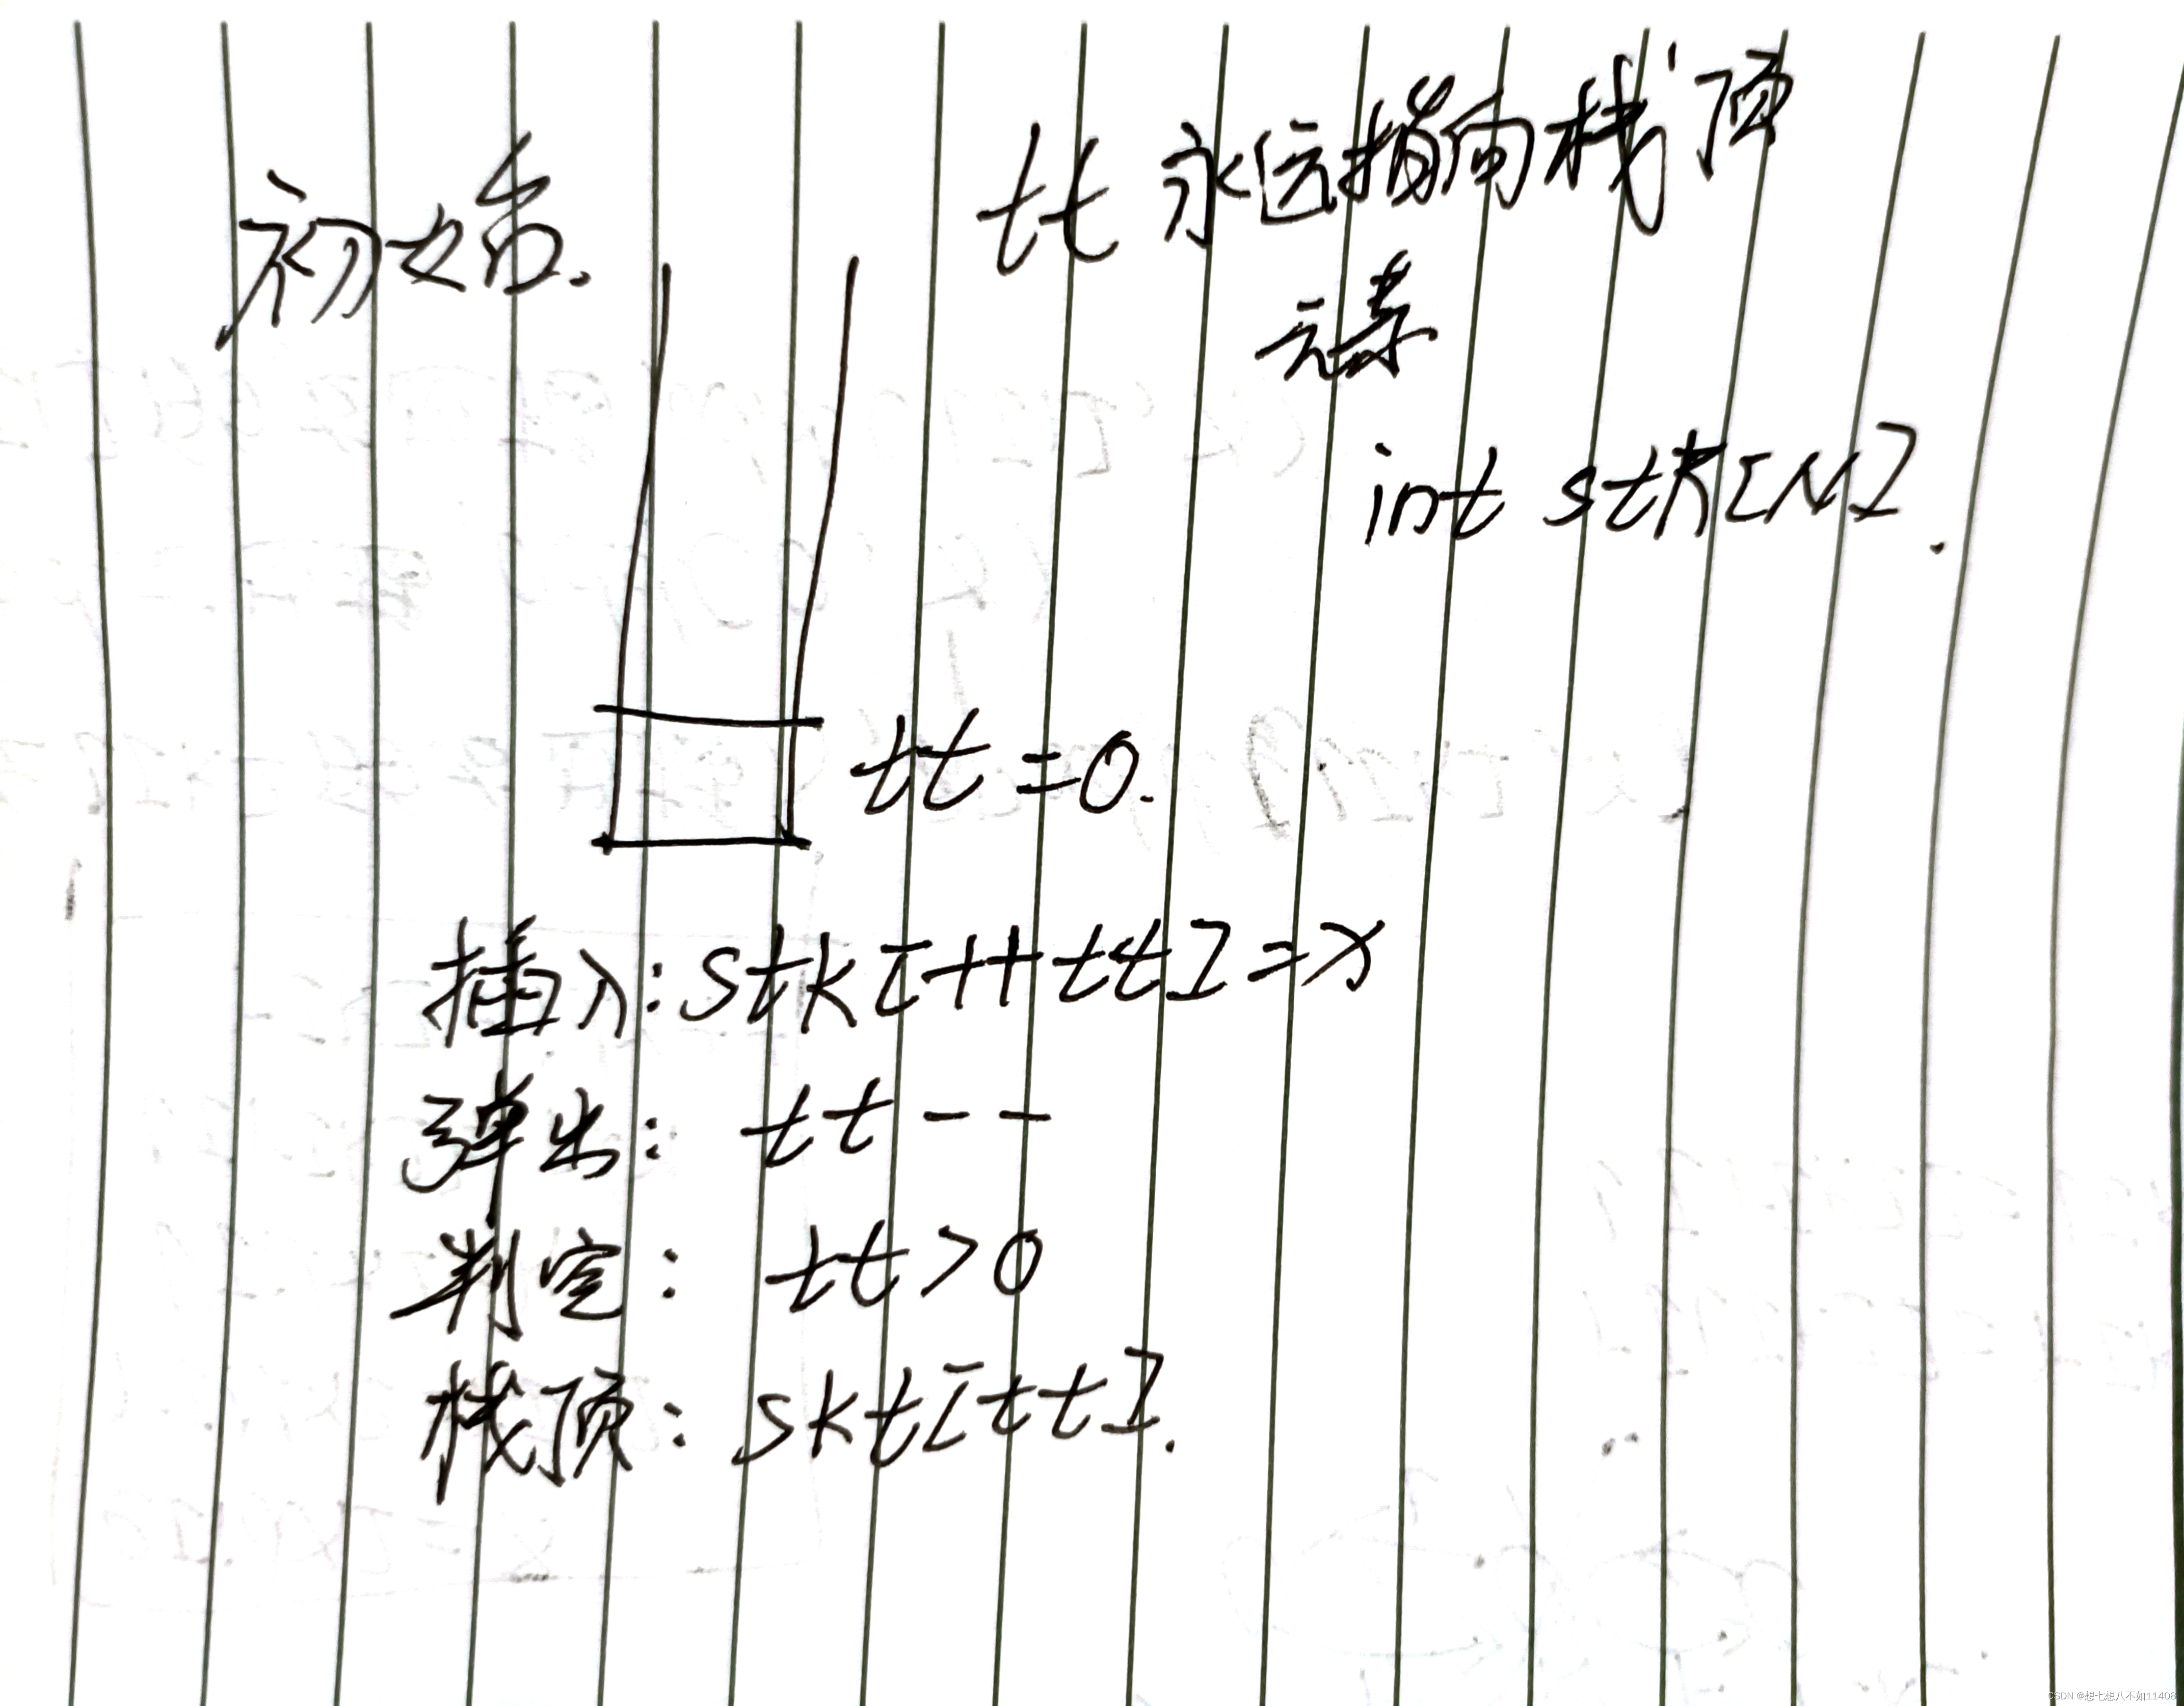 初始.
tt 永远指向栈顶
元素
int stk[N].
tt=0.
插入:stk[++tt]=x
弹出: tt--
判空: tt>0
栈顶: skt[tt].
CSDN @想七想八不如11408